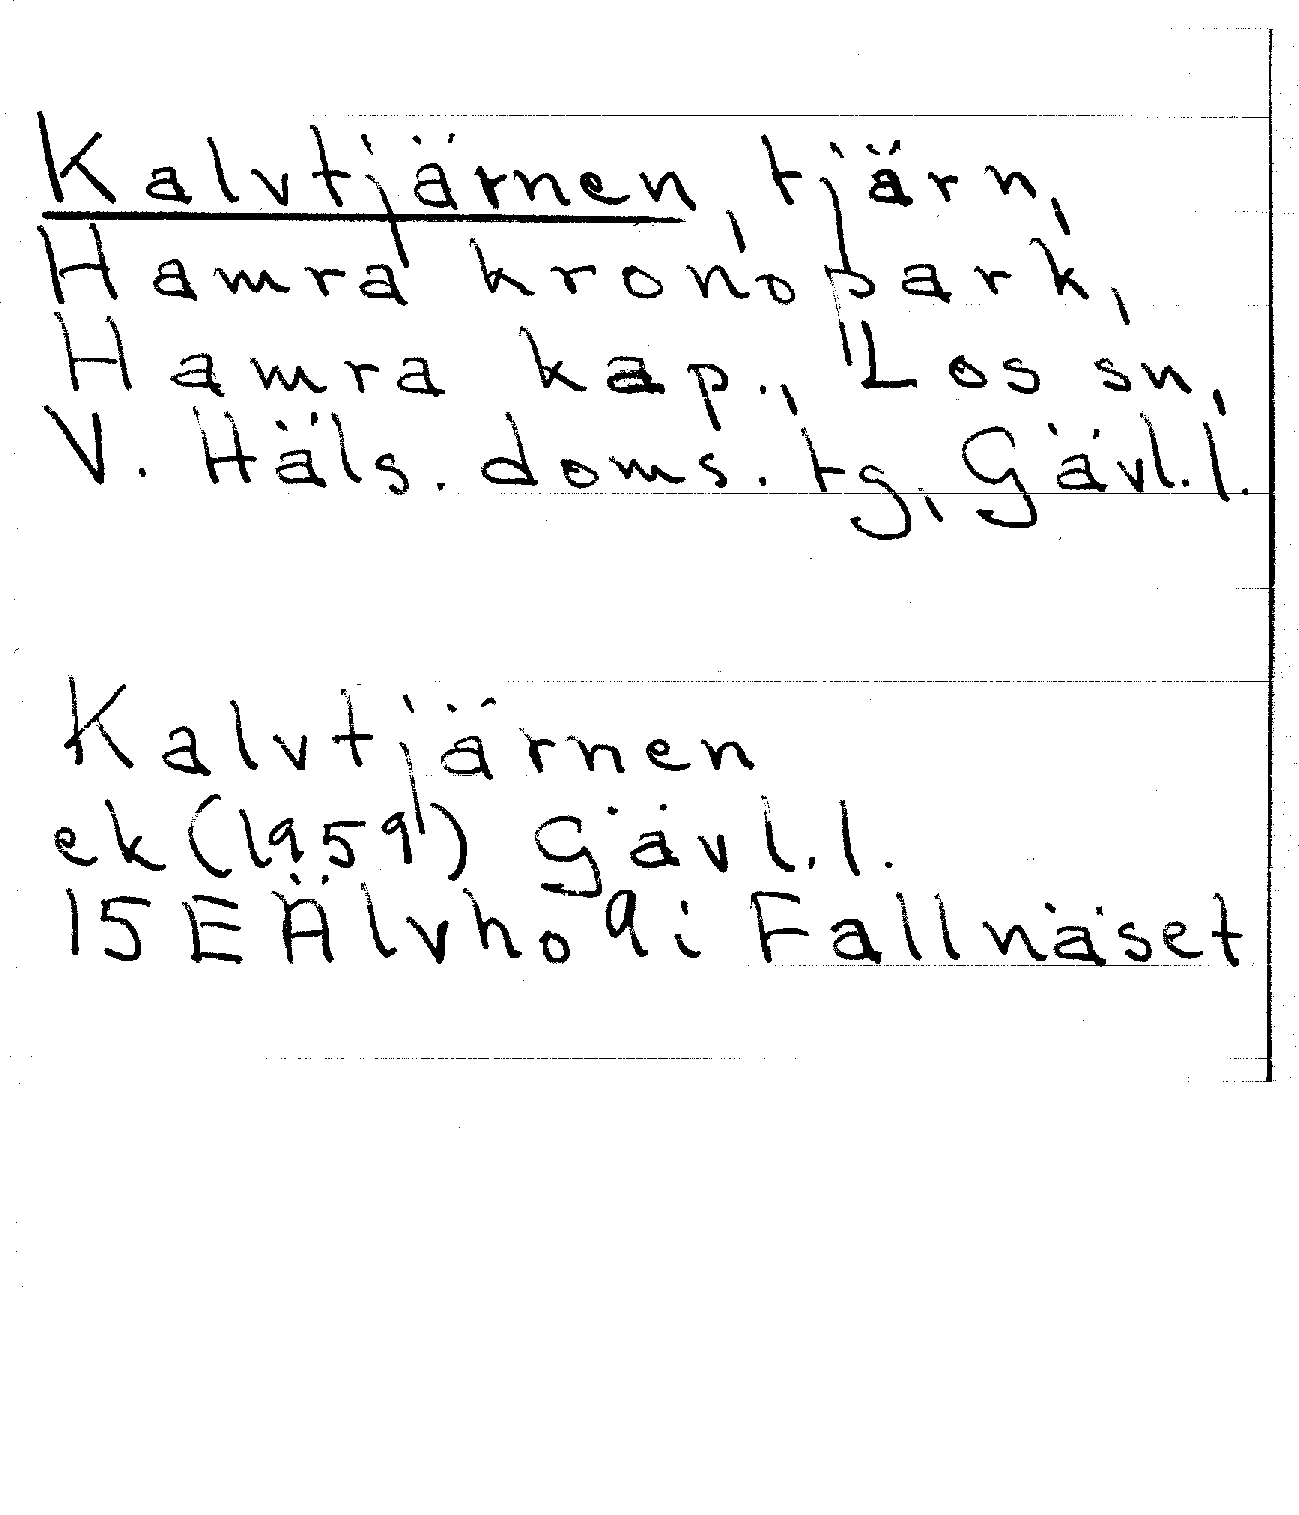 Kalvtjärnen, tjärn,
Hamra kronopark,
Hamra kap., Los sn,
V. Häls. doms. tg, Gävl.l.
Kalvtjärnen
ek (1959) Gävl.l.
15E Älvho 9i Fallnäset